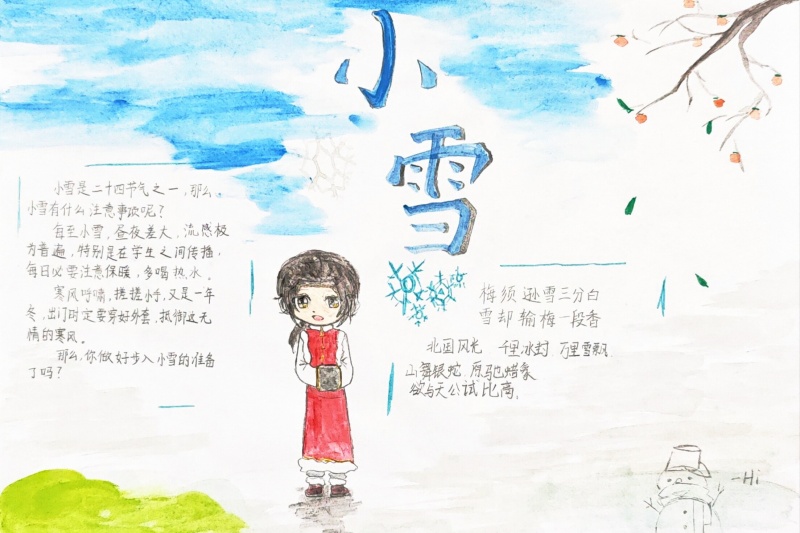 小雪
小雪是二十四节气之一,那么,
小雪有什么注意事项呢?
每至小雪,昼夜差大,流感极
为普遍,特别是在学生之间传播,
每日必要注意保暖,多喝热水。
寒风呼啸,搓搓小手,又是一年
冬,出门时定要穿好外套,抵御这无
情的寒风。
那么,你做好步入小雪的准备
了吗?
梅须逊雪三分白
雪却输梅一段香
北国风光 千里冰封 万里雪飘
山舞银蛇,原驰蜡象
欲与天公试比高。
-Hi